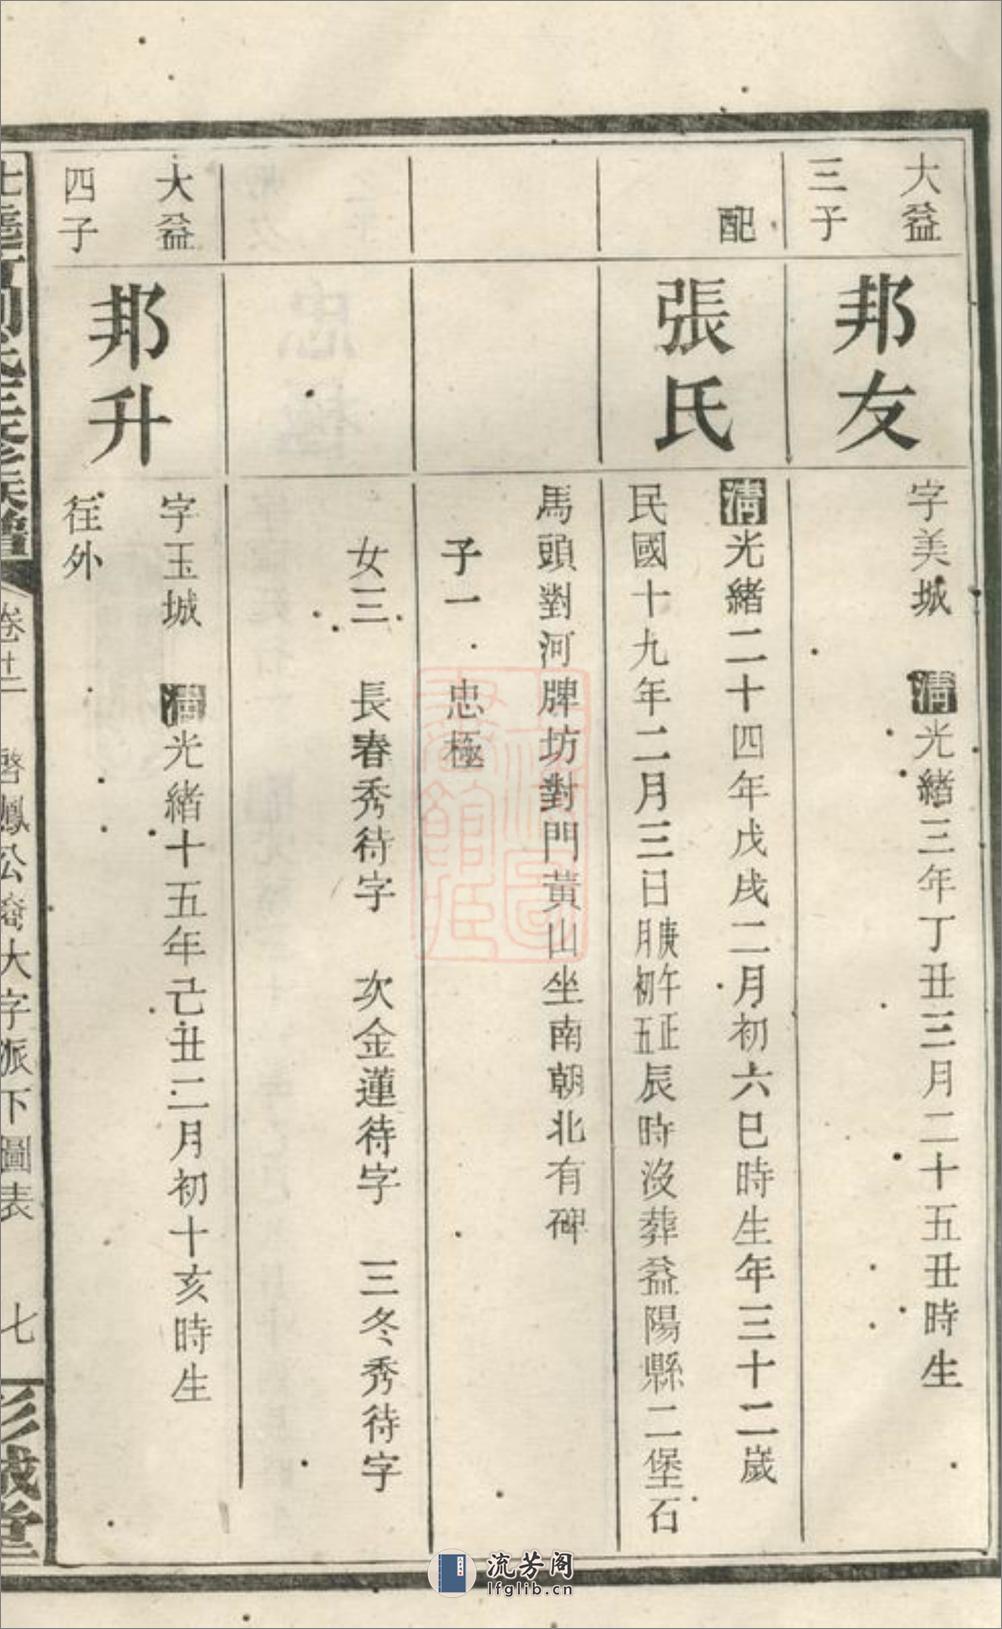 大益
三子
邦友
字美城 清光緒三年丁丑三月二十五丑時生
配
張氏
清光緒二十四年戊戌二月初六巳時生年三十二歲
民國十九年二月三日庚午正月初五辰時沒葬益陽縣二堡石
馬頭對河牌坊對門黃山坐南朝北有碑
子一 忠極
女三 長春秀待字 次金蓮待字 三冬秀待字
大益
四子
邦升
字玉城 清光緒十五年己丑二月初十亥時生
往外
氏三修族譜 卷廿二 啓鳳公裔大字派下圖表 七 彭城堂
流芳阁
lfglib.cn